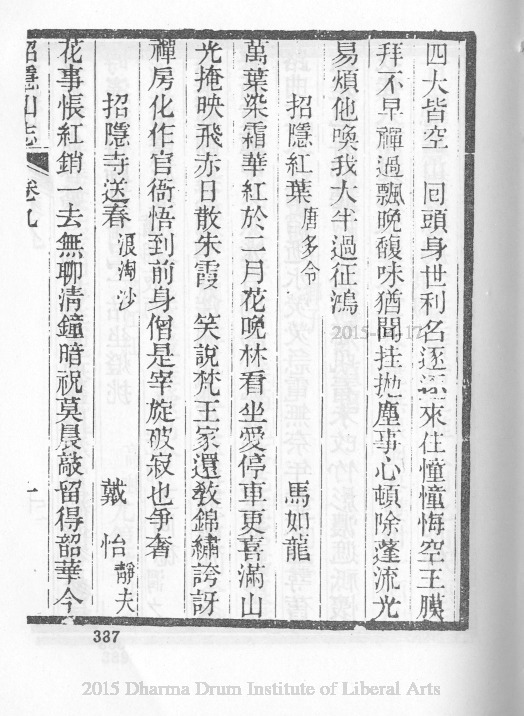 四大皆空　回頭身世利名逐逐來住憧憧悔空王膜
拜不早禪過飄晚馥味猶聞挂拋塵事心頓除蓬流光
易煩他喚我大半過征鴻
招隱紅葉 唐多令　馬如龍
萬葉染霜華紅於二月花晚林看坐愛停車更喜滿山
光掩映飛赤日散朱霞　笑說梵王家還教錦繡誇訝
禪房化作官衙悟到前身僧是宰旋破寂也爭奢
招隱寺送春 浪淘沙　戴怡 靜夫
花事悵紅銷一去無聊清鐘暗祝莫晨敲留得韶華今
招隱山志 卷九
十
387
2015-11-17
2015 Dharma Drum Institute of Liberal Arts